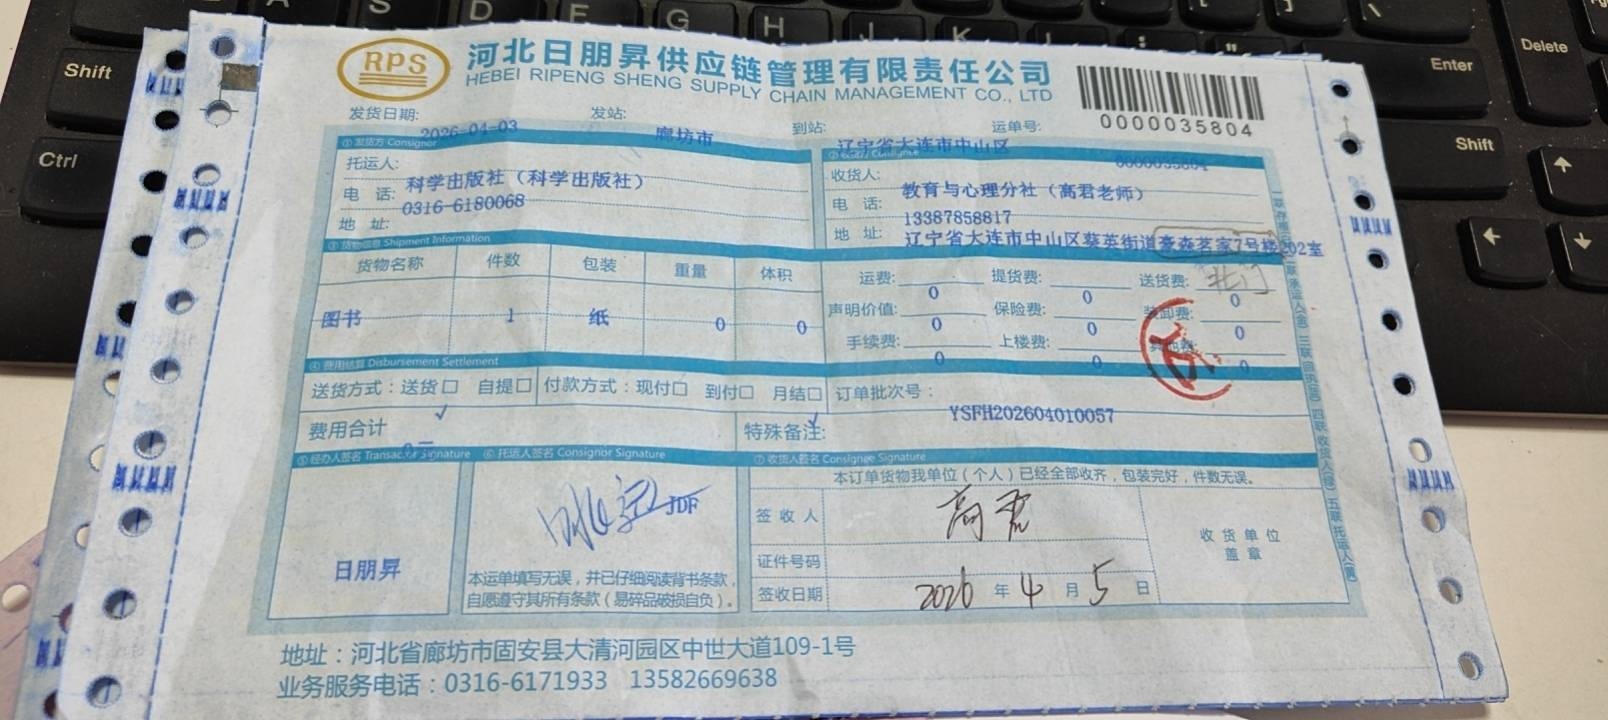 RPS
河北日朋昇供应链管理有限责任公司
HEBEI RIPENG SHENG SUPPLY CHAIN MANAGEMENT CO., LTD
0000035804
发货日期: 2026-04-03 发站: 廊坊市 到站: 辽宁省大连市中山区 运单号: 0000035804
① 发货方 Consignor
托运人: 科学出版社（科学出版社）
电 话: 0316-6180068
地 址:
收货人: 教育与心理分社（高君老师）
电 话: 13387858817
地 址: 辽宁省大连市中山区葵英街道豪森茗家7号楼202室
北门
③ 货物信息 Shipment Information
货物名称 件数 包装 重量 体积
图书 1 纸 0 0
运费: 0 提货费: 0 送货费: 0
声明价值: 0 保险费: 0 装卸费: 0
手续费: 0 上楼费: 0 0
④ 费用结算 Disbursement Settlement
送货方式：送货☐ 自提☐ 付款方式：现付☐ 到付☐ 月结☐ 订单批次号：
√ √ YSFH202604010057
费用合计 特殊备注:
⑤ 经办人签名 Transactor Signature ⑥ 托运人签名 Consignor Signature ⑦ 收货人签名 Consignee Signature
日朋昇
JDF
本运单填写无误，并已仔细阅读背书条款，
自愿遵守其所有条款（易碎品破损自负）。
本订单货物我单位（个人）已经全部收齐，包装完好，件数无误。
签收人 高君
证件号码
签收日期 2026 年 4 月 5 日
收货单位
盖章
地址：河北省廊坊市固安县大清河园区中世大道109-1号
业务服务电话：0316-6171933 13582669638
Shift
Ctrl
A
S
D
F
G
H
J
K
L
Delete
Enter
Shift